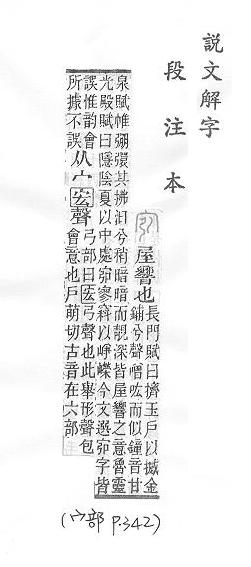 說文解字
段注本
宖
屋響也
長門賦曰擠玉戶以撼金
鋪兮聲噌吰而似鐘音甘
泉賦帷弸彋其拂汩兮稍暗暗而靚深皆屋響之意魯靈
光殿賦曰隱陰夏以中處宖寥窲以崢嶸今文選宖字皆
誤惟韵會
所據不誤
从宀弘聲
弓部曰弘弓聲也此舉形聲包
會意也戶萌切古音在六部
(宀部 P.342)